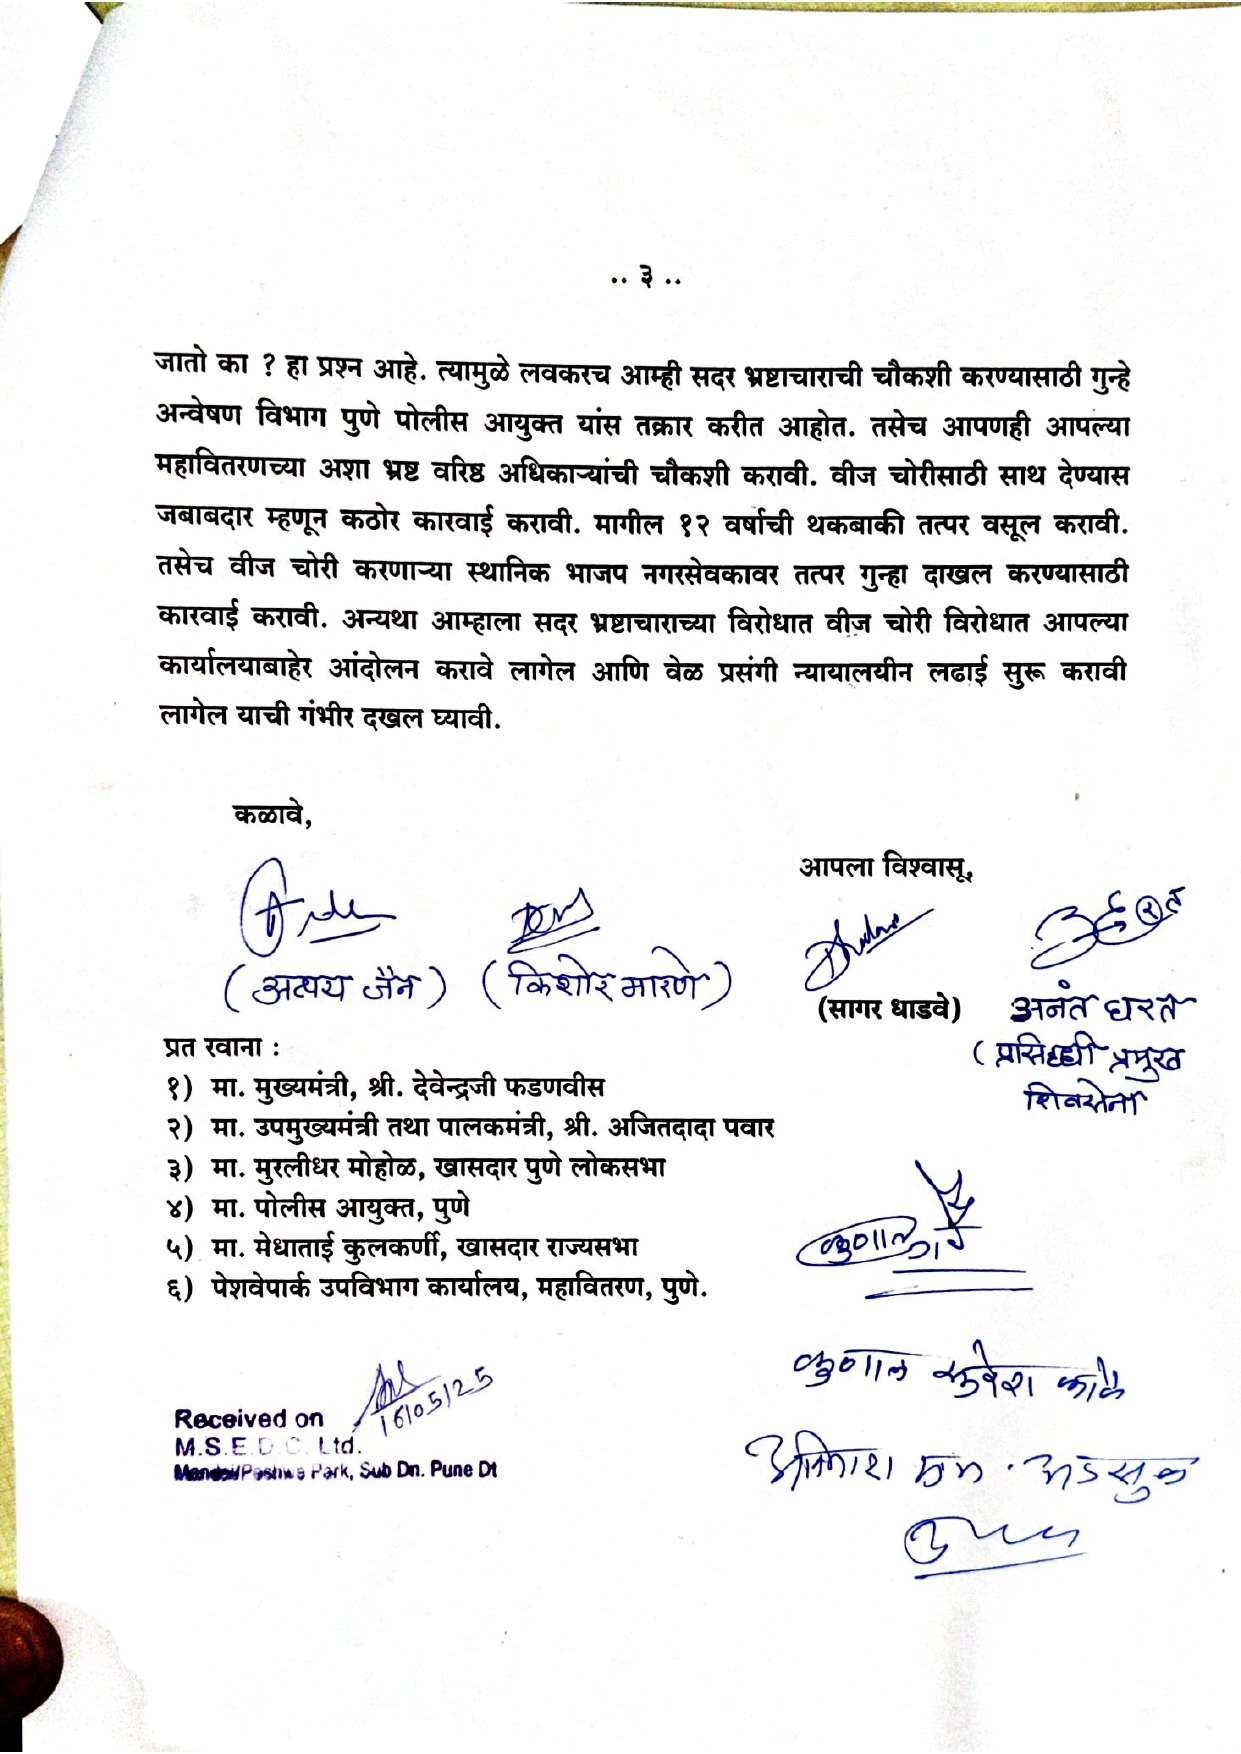 .. ३ ..
जातो का ? हा प्रश्न आहे. त्यामुळे लवकरच आम्ही सदर भ्रष्टाचाराची चौकशी करण्यासाठी गुन्हे
अन्वेषण विभाग पुणे पोलीस आयुक्त यांस तक्रार करीत आहोत. तसेच आपणही आपल्या
महावितरणच्या अशा भ्रष्ट वरिष्ठ अधिकाऱ्यांची चौकशी करावी. वीज चोरीसाठी साथ देण्यास
जबाबदार म्हणून कठोर कारवाई करावी. मागील १२ वर्षाची थकबाकी तत्पर वसूल करावी.
तसेच वीज चोरी करणाऱ्या स्थानिक भाजप नगरसेवकावर तत्पर गुन्हा दाखल करण्यासाठी
कारवाई करावी. अन्यथा आम्हाला सदर भ्रष्टाचाराच्या विरोधात वीज चोरी विरोधात आपल्या
कार्यालयाबाहेर आंदोलन करावे लागेल आणि वेळ प्रसंगी न्यायालयीन लढाई सुरू करावी
लागेल याची गंभीर दखल घ्यावी.
कळावे,
आपला विश्वासू,
( जैन ) ( किशोर मारणे )
(सागर धाडवे)
अनंत घरत
( प्रसिध्दी प्रमुख
शिवसेना
प्रत रवाना :
१) मा. मुख्यमंत्री, श्री. देवेन्द्रजी फडणवीस
२) मा. उपमुख्यमंत्री तथा पालकमंत्री, श्री. अजितदादा पवार
३) मा. मुरलीधर मोहोळ, खासदार पुणे लोकसभा
४) मा. पोलीस आयुक्त, पुणे
५) मा. मेधाताई कुलकर्णी, खासदार राज्यसभा
६) पेशवेपार्क उपविभाग कार्यालय, महावितरण, पुणे.
कुणाल
कुणाल
16/05/25
Received on
M.S.E.D.C. Ltd.
Mandai/Peshwe Park, Sub Dn. Pune Dt